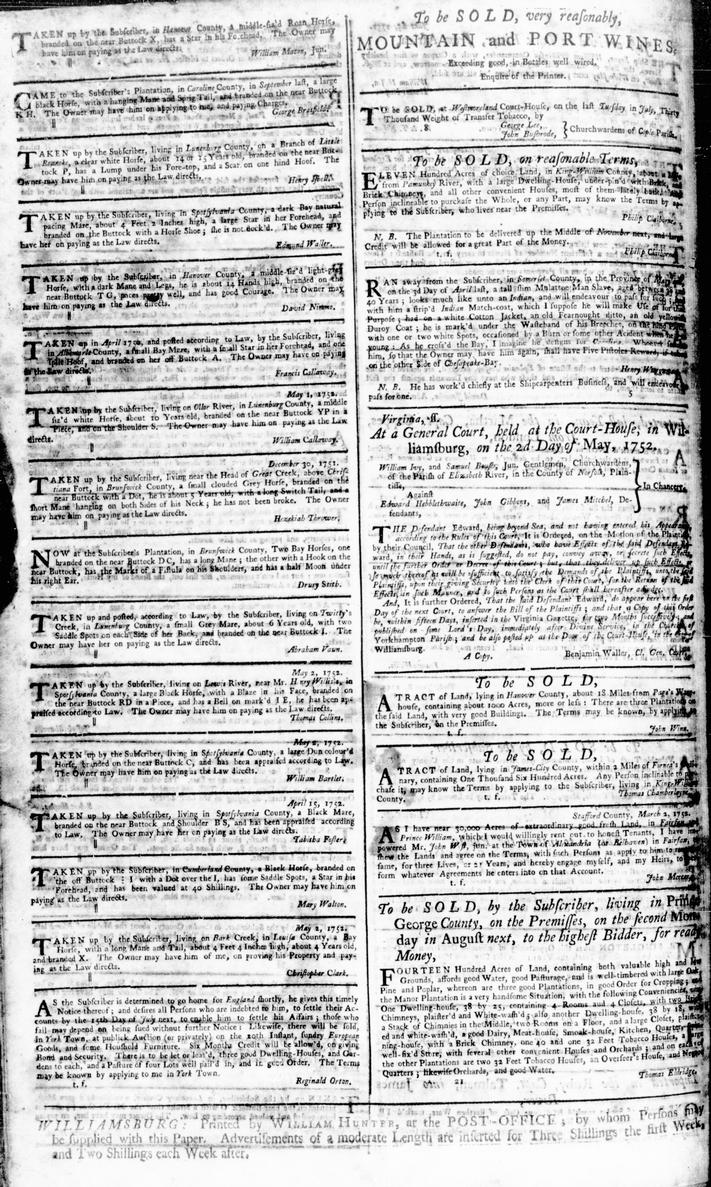 TAKEN up by the Subscriber, in Hanover County, a middle-siz'd Roan Horse,
branded on the near Buttock X, has a Star in his Forehead, The Owner may
have him on paying as the Law directs.
William Maton, Jun.
CAME to the Subscriber's Plantation, in Caroline County, in September last, a large
black Horse, with a hanging Mane and Sprig Tail, and branded on the near Buttock
K H. The Owner may have him on applying to me, and paying Charges.
George
TAKEN up by the Subscriber, living in Lunenburg County, on a Branch of Little
Roanoke, a clear white Horse, about 14 or 15 Years old, branded on the near But-
tock P, has a Lump under his Fore-top, and a Scar on one hind Hoof. The
Owner may have him on paying as the Law directs.
Henry
TAKEN up by the Subscriber, living in Spotsylvania County, a dark Bay natural
pacing Mare, about 4 Feet 2 Inches high, a large Star in her Forehead, and
branded on the Buttock with a Horse Shoe; she is not dock'd. The Owner may
have her on paying as the Law directs.
Edmund Waller.
TAKEN up by the Subscriber, in Hanover County, a middle-siz'd light-grey
Horse, with a dark Mane and Legs, he is about 14 Hands high, branded on the
near Buttock TG, paces pretty well, and has good Courage. The Owner may
have him on paying as the Law directs.
David Nimmo.
TAKEN up in April 1750, and posted according to Law, by the Subscriber, living
in Albemarle County, a small Bay Mare, with a small Star in her Forehead, and one
white Hoof, and branded on her off Buttock A. The Owner may have on paying
as the Law directs.
Francis Callaway.
May 1, 1752.
TAKEN up by the Subscriber, living on Otter River, in Lunenburg County, a middle
siz'd white Horse, about 10 Years old, branded on the near Buttock YP in a
Piece, and on the Shoulder S. The Owner may have him on paying as the Law
directs.
William Callaway.
December 30, 1751.
TAKEN up by the Subscriber, living near the Head of Great Creek, above Chris-
tiana Fort, in Brunswick County, a small clouded Grey Horse, branded on the
near Buttock with a Dot, he is about 5 Years old, with a long Switch Tail, and a
short Mane hanging on both Sides of his Neck; he has not been broke. The Owner
may have him on paying as the Law directs.
Hezekiah Thrower.
NOW at the Subscriber's Plantation, in Brunswick County, Two Bay Horses, one
branded on the near Buttock DC, has a long Mane; the other with a Hook on the
near Buttock, has the Marks of a Fistula on his Shoulders, and has a half Moon under
his right Ear.
Drury Stith.
TAKEN up and posted, according to Law, by the Subscriber, living on Twitty's
Creek, in Lunenburg County, a small Grey Mare, about 6 Years old, with two
Saddle Spots on each Side of her Back, and branded on the near Buttock I. The
Owner may have her on paying as the Law directs.
Abraham Vaun.
May 2, 1752.
TAKEN up by the Subscriber, living on Lewis River, near Mr. Henry Willis's, in
Spotsylvania County, a large Black Horse, with a Blaze in his Face, branded on
the near Buttock RD in a Piece, and has a Bell on mark'd I E, he has been ap-
praised according to Law. The Owner may have him on paying as the Law directs.
Thomas Collins.
May 2, 1752.
TAKEN up by the Subscriber, living in Spotsylvania County, a large Dun colour'd
Horse, branded on the near Buttock C, and has been appraised according to Law.
The Owner may have him on paying as the Law directs.
William Bartlet.
April 15, 1752.
TAKEN up by the Subscriber, living in Spotsylvania County, a Black Mare,
branded on the near Buttock and Shoulder BS, and has been appraised according
to Law. The Owner may have her on paying as the Law directs.
Tabitha Foster.
TAKEN up by the Subscriber, in Cumberland County, a Black Horse, branded on
the off Buttock I with a Dot over the I, has some Saddle Spots, a Star in his
Forehead, and has been valued at 40 Shillings. The Owner may have him on
paying as the Law directs.
Mary Walton.
May 2, 1752.
TAKEN up by the Subscriber, living on Bark Creek, in Louisa County, a Bay
Horse, with a long Mane and Tail, about 4 Feet 4 Inches high, about 4 Years old,
and branded X. The Owner may have him of me, on proving his Property and pay-
ing as the Law directs.
Christopher Clark.
AS the Subscriber is determined to go home for England shortly, he gives this timely
Notice thereof; and desires all Persons who are indebted to him, to settle their Ac-
counts by the 15th Day of July next, to enable him to settle his Affairs; those who
fail may depend on being sued without further Notice: Likewise, there will be sold,
in York Town, at publick Auction (or privately) on the 20th Instant, sundry European
Goods, and some Houshold Furniture. Six Months Credit will be allow'd, on giving
Bond and Security. There is to be let or leas'd, three good Dwelling-Houses, and Gar-
dens to each, and a Pasture of four Lots well pail'd in, and in good Order. The Terms
may be known by applying to me in York Town.
t. f.
Reginald Orton.
To be SOLD, very reasonably,
MOUNTAIN and PORT WINES,
Exceeding good, in Bottles well wired.
Enquire of the Printer.
TO be SOLD, at Westmoreland Court-House, on the last Tuesday in July, Thirty
Thousand Weight of Transfer Tobacco, by
8.
George Lee,
John Bushrode,
Churchwardens of Cople Parish.
To be SOLD, on reasonable Terms,
ELEVEN Hundred Acres of choice Land, in King-William County, about a
from Pamunkey River, with a large Dwelling-House, under-pin'd with Brick,
Brick Chimneys, and all other convenient Houses, most of them
Person inclineable to purchase the Whole, or any Part, may know the Terms by ap-
plying to the Subscriber, who lives near the Premisses.
Philip Claiborne.
N. B. The Plantation to be delivered up the Middle of November next, and large
Credit will be allowed for a great Part of the Money.
t. f.
Philip Claiborne
RAN away from the Subscriber, in Somerset County, in the Province of Maryland,
on the 3d Day of April last, a tall slim Mulatto Man Slave, aged between
40 Years; looks much like unto an Indian, and will endeavour to pass for such;
with him a strip'd Indian Match-coat, which I suppose he will make Use of
Purpose; had on a white Cotton Jacket, an old Fearnought ditto, an old
Duroy Coat; he is mark'd under the Wasteband of his Breeches, on the
with one or two white Spots, occasioned by a Burn or some other Accident when
young. As he cross'd the Bay, I imagine he designs for Carolina. Whoever
him, so that the Owner may have him again, shall have Five Pistoles Reward, if
on the other Side of Chesapeak-Bay.
Henry
N. B. He has work'd chiefly at the Shipcarpenters Business, and will endeavour
pass for one.
5
Virginia, ss.
At a General Court, held at the Court-House, in Wil-
liamsburg, on the 2d Day of May, 1752.
William Ivy, and Samuel Boush, Jun. Gentlemen, Churchwardens,
of the Parish of Elizabeth River, in the County of Norfolk, Plain-
tiffs,
Against
Edward Hebblethwaite, John Gibbons, and James Mitchel, De-
fendants,
In Chancery.
THE Defendant Edward, being beyond Sea, and not having entered his Appearance
according to the Rules of this Court, It is Ordered, on the Motion of the Plaintiffs,
by their Council, That the other Defendants, who have Effects of the said Defendant Ed-
ward, in their Hands, as is suggested, do not pay, convey away, or secrete such Effects,
until the further Order or Decree of this Court; but that they deliver up such Effects, or
so much thereof as will be sufficient to satisfy the Demands of the Plaintiffs, unto the said
Plaintiffs, upon their giving Security with the Clerk of this Court, for the Return of the said
Effects, in such Manner, and to such Persons as the Court shall hereafter adjudge.
And, It is further Ordered, That the said Defendant Edward, do appear here on the first
Day of the next Court, and answer the Bill of the Plaintiffs; and that a Copy of this Order
be, within fifteen Days, inserted in the Virginia Gazette, for two Months successively; and
published on some Lord's Day, immediately after Divine Service, in the Church of
Yorkhampton Parish; and be also posted up at the Door of the Court-House, in the City of
Williamsburg.
A Copy.
Benjamin Waller, Cl. Gen. Court.
To be SOLD,
A TRACT of Land, lying in Hanover County, about 18 Miles from Page's Ware-
house, containing about 1000 Acres, more or less: There are three Plantations on
the said Land, with very good Buildings. The Terms may be known, by applying to
the Subscriber, on the Premisses.
t. f.
John Winn.
To be SOLD,
A TRACT of Land, lying in James-City County, within 2 Miles of Furnea's
nary, containing One Thousand Six Hundred Acres. Any Person inclinable to pur-
chase it, may know the Terms by applying to the Subscriber, living in King-William
County.
t. f.
Thomas Chamberlayne.
Stafford County, March 2, 1752.
AS I have near 30,000 Acres of extraordinary good fresh Land, in Fairfax and
Prince William, which I would willingly rent out to honest Tenants, I have im-
powered Mr. John West, jun. at the Town of Alexandria (or Belhaven) in Fairfax, to
shew the Lands and agree on the Terms, with such Persons as apply to him to
their, for three Lives, or 21 Years, and hereby engage myself, and my Heirs, to per-
form whatever Agreements he enters into on that Account.
t. f.
John Mercer.
To be SOLD, by the Subscriber, living in Prince
George County, on the Premisses, on the second Mon-
day in August next, to the highest Bidder, for ready
Money,
FOURTEEN Hundred Acres of Land, containing both valuable high and low
Grounds, affords good Water, good Pasturage, and is well-timbered with large Oak,
Pine and Poplar, whereon are three good Plantations, in good Order for Cropping;
the Manor Plantation is a very handsome Situation, with the following Conveniencies,
One Dwelling-house, 38 by 25, containing 4 Rooms and 4 Closets, with two Brick
Chimneys, plaister'd and White-wash'd; also another Dwelling-house, 38 by 18, with
a Stack of Chimnies in the Middle, two Rooms on a Floor, and a large Closet, plaister-
ed and white-wash'd, a good Dairy, Meat-house, Smoak-house, Kitchen, Quarter,
ing-house, with a Brick Chimney, one 40 and one 32 Feet Tobacco Houses,
well-fix'd Store, with several other convenient Houses and Orchards; and on each of
the other Plantations are two 32 Feet Tobacco Houses, an Overseer's House, and Negroe
Quarters; likewise Orchards, and good Water.
Thomas Eldridge.
WILLIAMSBURG: Printed by WILLIAM HUNTER, at the POST-OFFICE; by whom Persons may
be supplied with this Paper. Advertisements of a moderate Length are inserted for Three Shillings the first Week,
and Two Shillings each Week after.